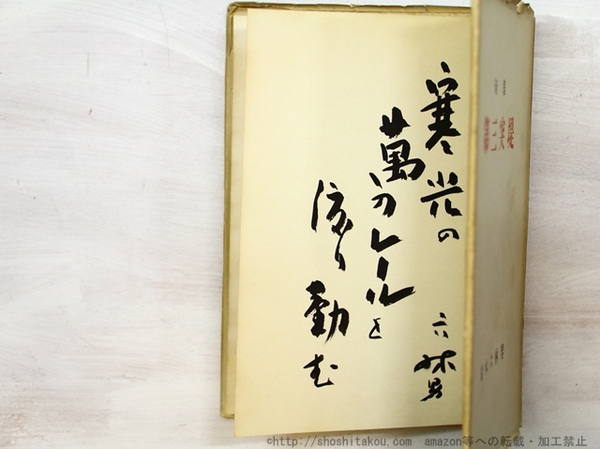 寒光の
萬のレールを
渡り勤む
六林男
第三突堤
©http://shoshitakou.com amazon等への転載・加工禁止